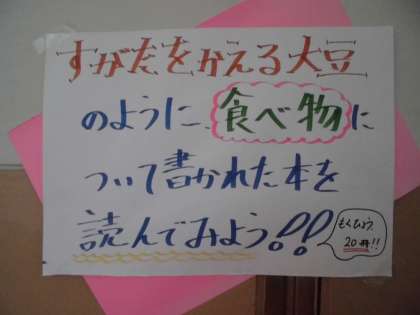 すがたをかえる大豆
のように、食べ物に
ついて書かれた本を
読んでみよう!!
もくひょう
20冊!!